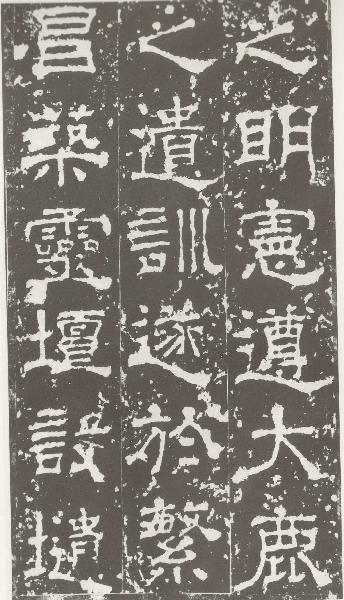 之明憲遵大鹿
之遺訓遂於繁
昌築靈壇設壝